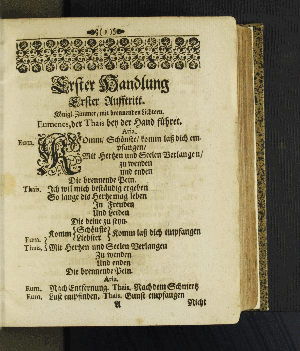 Erster Handlung
Erster Aufftritt.
Königl. Zimmer, mit brennenden Lichtern.
Eumenes, der Thais bey der Hand führet.
Aria.
Eum. Komm/ Schönste/ komm laß dich em-
pfangen/
Mit Hertzen und Seelen Verlangen/
zu wenden
und enden
Die brennende Pein.
Thais. Ich wil mich beständig ergeben
So lange die Hertzen mag leben
In Freuden
Und Leiden
Die deine zu seyn.
Eum. Thais. Komm Schönste Liebster Komm laß dich empfangen
Mit Hertzen und Seelen Verlangen
Zu wenden
Und enden
Die brennende Pein.
Aria.
Eum. Nach Entfernung. Thais. Nach dem Schmertz
Eum. Lust empfinden, Thais. Gunst empfangen
A Nicht